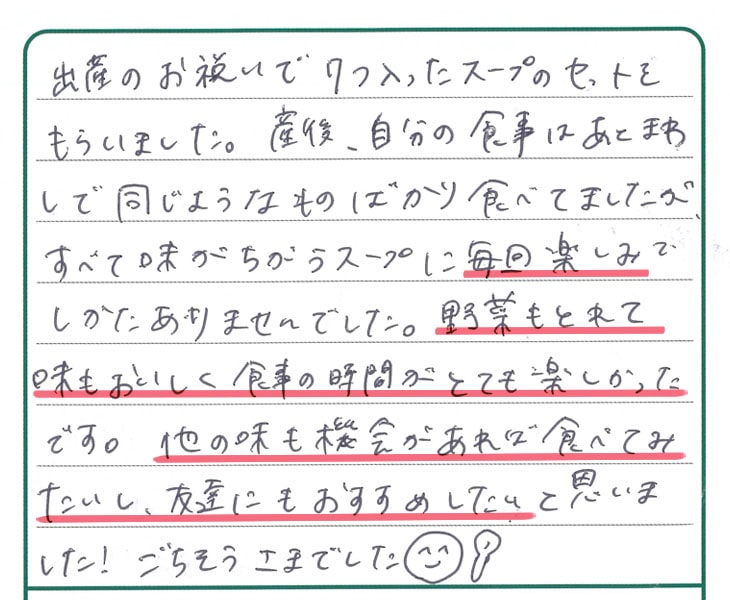 出産のお祝いで7つ入ったスープのセットを
もらいました。産後、自分の食事はあとまわ
しで同じようなものばかり食べてましたが、
すべて味がちがうスープに毎回楽しみで
しかたありませんでした。野菜もとれて
味もおいしく食事の時間がとても楽しかった
です。他の味も機会があれば食べてみ
たいし、友達にもおすすめしたいと思いま
した!ごちそうさまでした